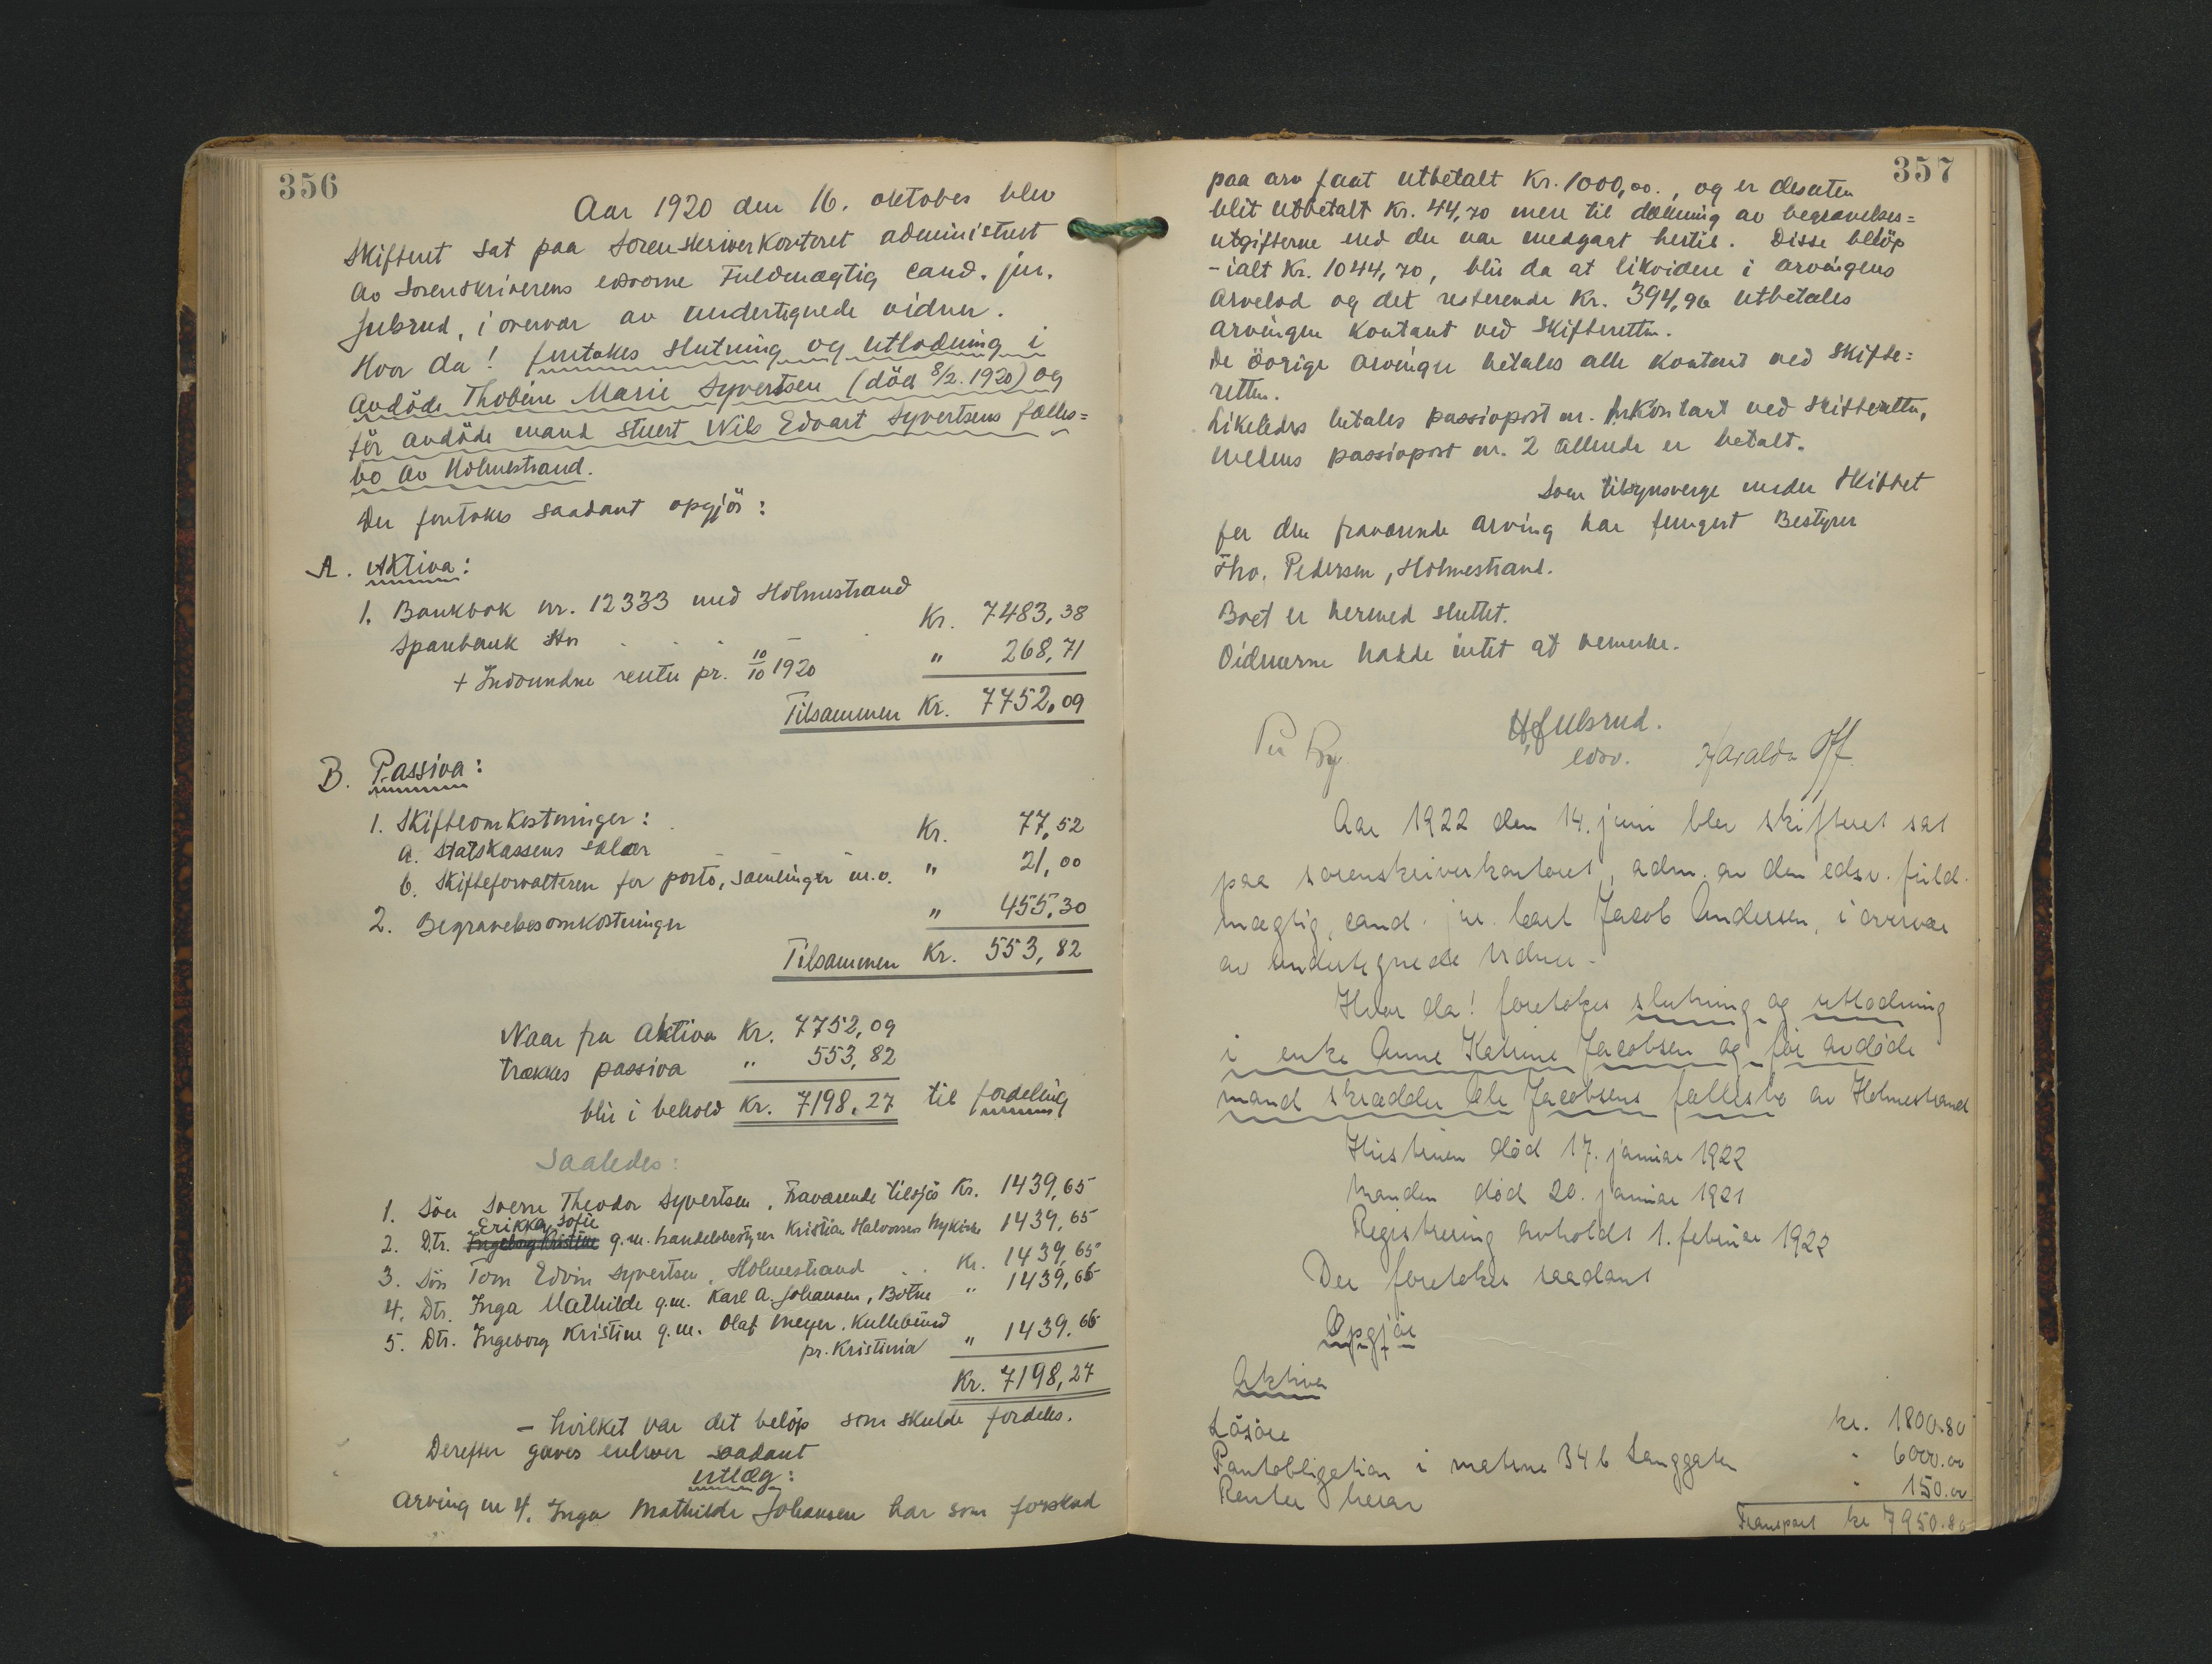 356
Aar 1920 den 16. oktober blev
skifteret sat paa sorenskriverkontoret administrert
av sorenskriverens edsvorne fuldmægtig cand. jur.
Julsrud, i overvær av undertegnede vidner.
Hvor da! foretokes slutning og utlodning i
avdöde Thobine Marie Syvertsen (död 8/2. 1920) og
för avdöde mand stuert Nils Edvart Syvertsens fælles=
bo av Holmestrand.
Der foretokes saadant opgjör:
A. Aktiva:
1. Bankbok nr. 12333 med Holmestrand
Sparebank stor Kr. 7483,38
+ Indvundne renter pr. 10/10 1920 " 268,71
Tilsammen Kr. 7752,09
B. Passiva:
1. Skifteomkostninger:
a. Statskassens salær Kr. 77,52
b. Skifteforvalteren for porto, samlinger m.v. " 21,00
2. Begravelsesomkostninger " 455,30
Tilsammen Kr. 553,82
Naar fra aktiva Kr. 7752,09
trækkes passiva " 553,82
blir i behold Kr. 7198,27 til fordeling
Saaledes:
1. Sön Sverre Theodor Syvertsen, fraværende tilsjös Kr. 1439,65
Erikka Sofie
2. Dtr. Ingeborg Kristine g.m. handelsbestyrer Kristian Halvorsen Nykirke 1439,65
3. Sön Tom Edvin Syvertsen, Holmestrand Kr. 1439,65
4. Dtr. Inga Mathilde g.m. Karl A. Johansen, Botne " 1439,66
5. Dtr. Ingeborg Kristine g.m. Olaf Meyer. Kullebund
pr. Kristinia " 1439.66
Kr. 7198,27
- hvilket var det belöp som skulde fordeles.
Derefter gaves enhver saadant
utlæg:
Arving nr 4. Inga Mathilde Johansen har som forskud
357
paa arv faat utbetalt Kr. 1000,00., og er desuten
blit utbetalt Kr. 44,70 mere til dækning av begravelses=
utgifterne end der var medgaat hertil. Disse belöp
- ialt Kr. 1044,70, blir da at likvidere i arvingens
arvelod og det resterende Kr. 394,96 utbetales
arvingen kontant ved skifteretten.
De övrige arvinger betales alle kontant ved skifte=
retten.
Likeledes betales passivpost nr. 1 kontant ved skifteretten,
medens passivpost nr. 2 allerede er betalt.
Som tilsynsverge under skiftet
for den fraværende arving har fungert Bestyrer
Tho. Pedersen, Holmestrand.
Boet er hermed sluttet.
Vidnerne hadde intet at bemerke.
H. Julsrud.
edsv. Haralda Off
Aar 1922 den 14. juni blev skifteret sat
paa sorenskriverkontoret, adm. av den edsv. fuld-
mægtig, cand. jur. Carl Jacob Andersen, i overvær
av undertegnede vidner -
Hvor da! foretokes slutning og utlodning
i enke Anne Katrine Jacobsen og för avdöde
mand skrædder Ole Jacobsens fællesbo av Holmestrand
Hustruen död 17. januar 1922
Manden död 20. januar 1921
Registrering avholdt 1. februar 1922
Der foretokes saadant
Opgjör
Aktiva
Lösöre kr. 1800.80
Pantobligation i matrnr 34 b Langgaten " 6000.00
Renter herav " 150.00
Transport kr 7950.80